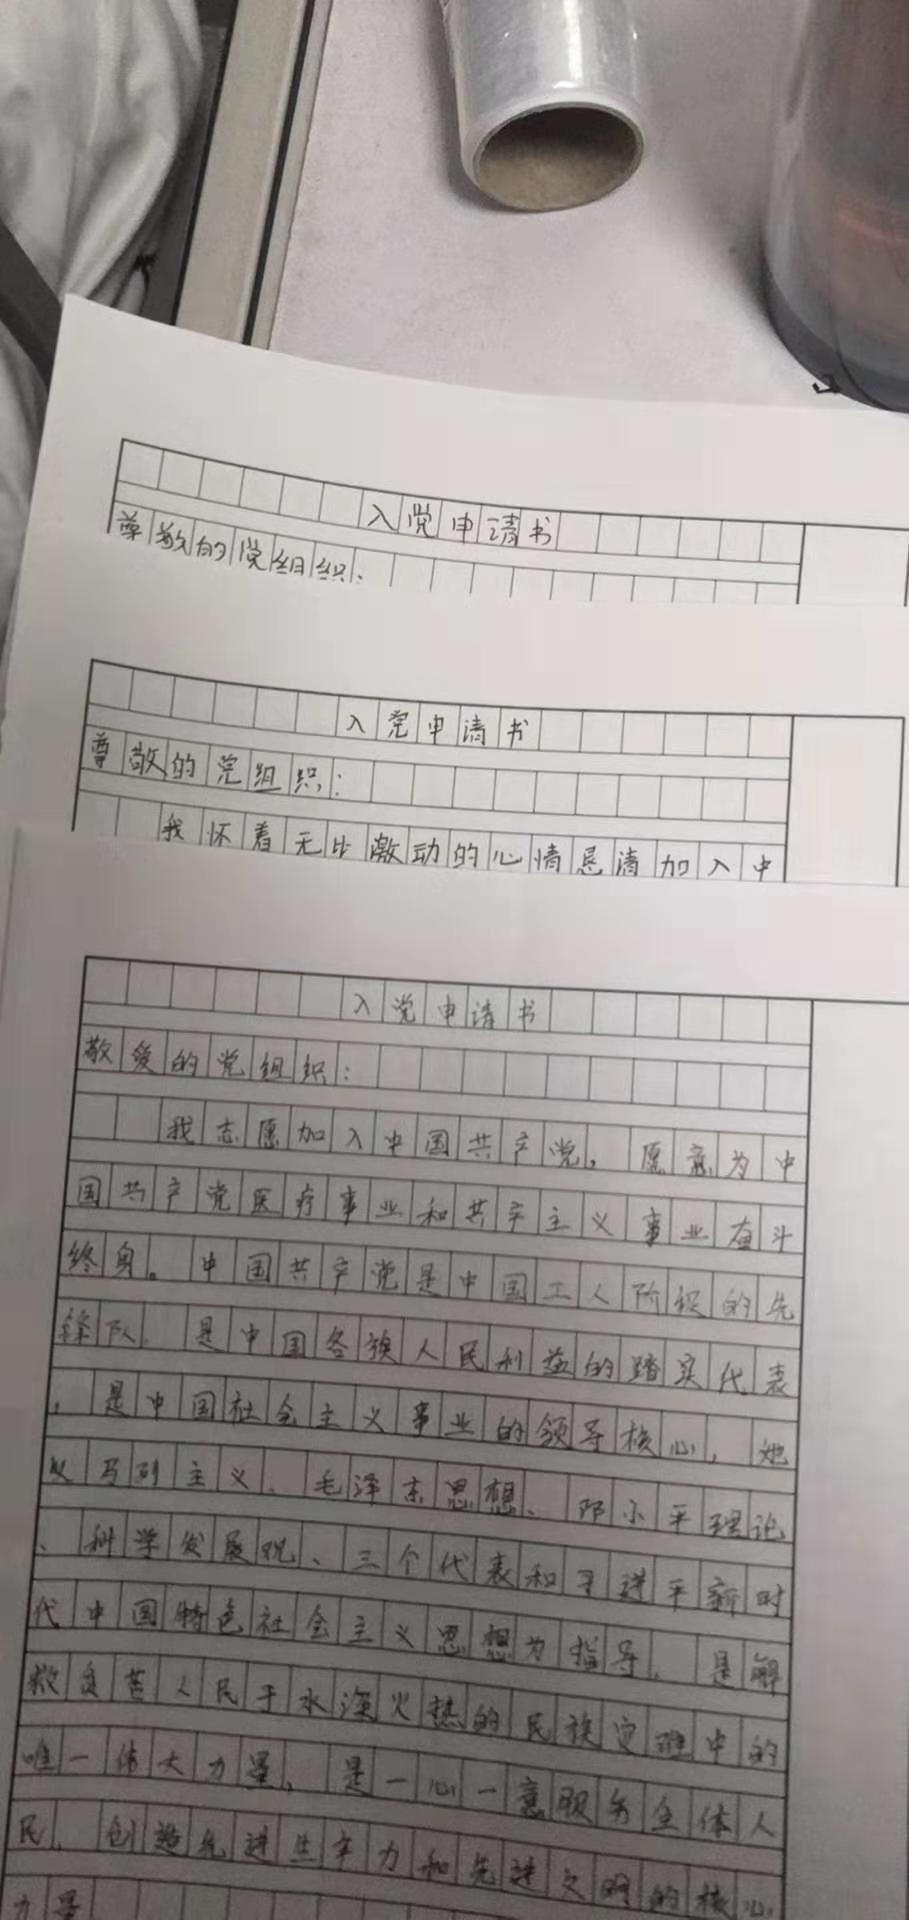 入党申请书
尊敬的党组织：
入党申请书
尊敬的党组织：
我怀着无比激动的心情恳请加入中
入党申请书
敬爱的党组织：
我志愿加入中国共产党，愿意为中
国共产党医疗事业和共产主义事业奋斗
终身。中国共产党是中国工人阶级的先
锋队，是中国各族人民利益的踏实代表
，是中国社会主义事业的领导核心，她
以马列主义、毛泽东思想、邓小平理论
、科学发展观、三个代表和习进平新时
代中国特色社会主义思想为指导，是解
救负苦人民于水深火热的民族危难中的
唯一伟大力量，是一心一意服务全体人
民，创造先进生产力和先进文明的核心
力量